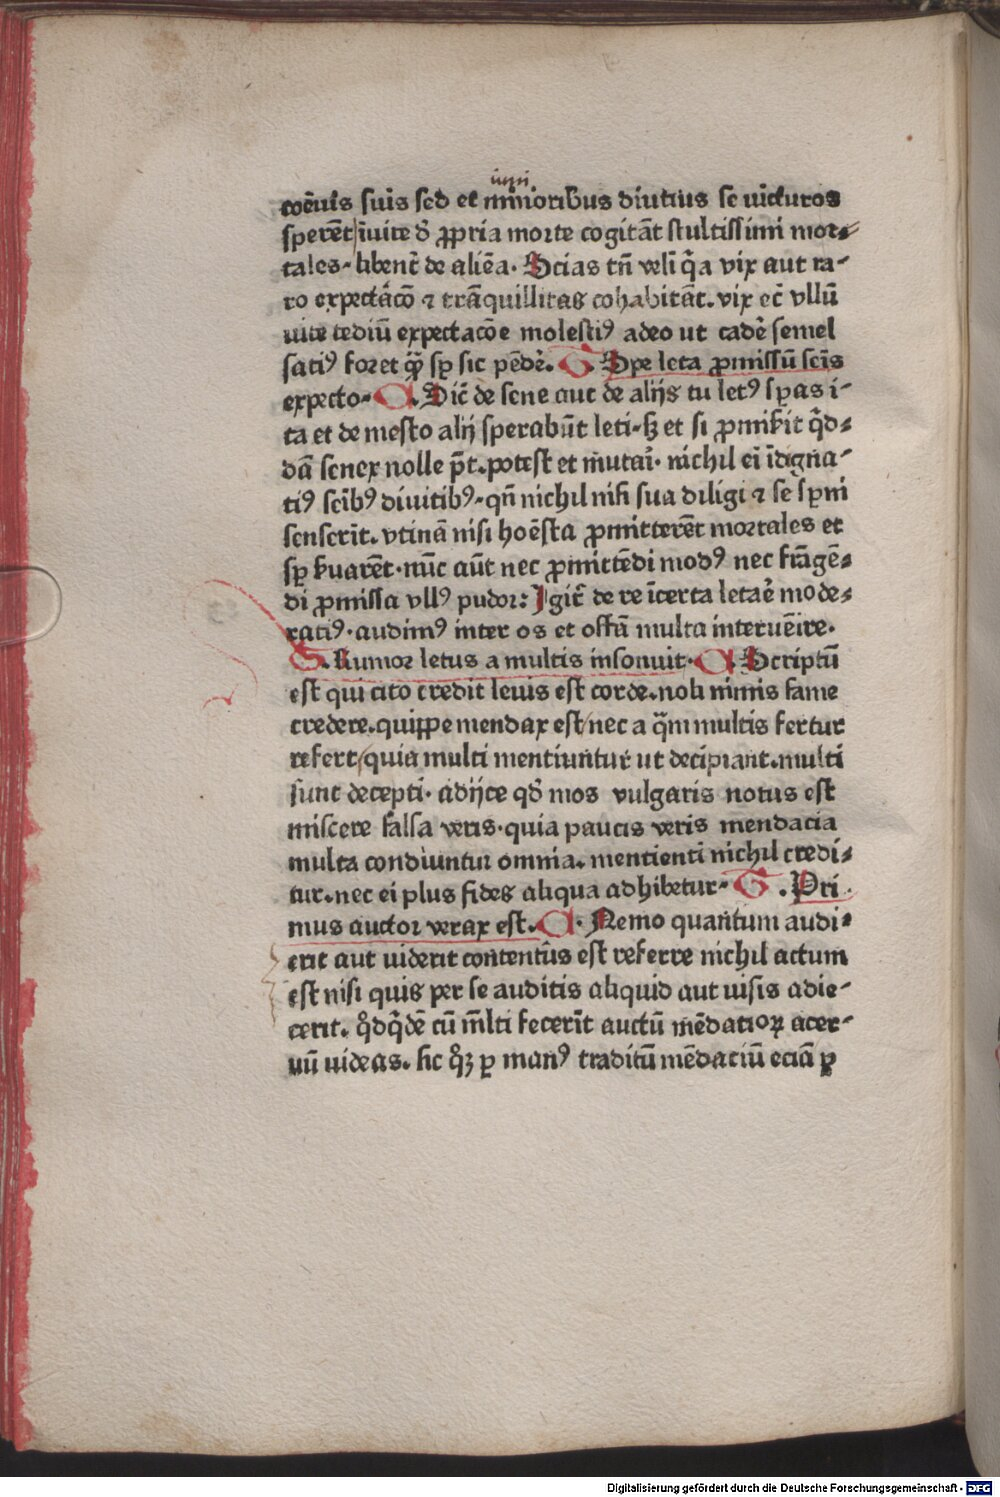 iuni
coēuis suis sed et minoribus diutius se uicturos
sperēt iuite d̄ ꝓpria morte cogitāt stultissimi mor-
tales. libent̄ de aliēa. Scias tn̄ veli q̄a vix aut ra-
ro expectācō ⁊ trāquillitas cohabitāt. vix ec̄ vllū
uite tediū expectacōe molestiꝰ adeo ut cadē semel
satiꝰ foret qꝫ̄ sꝑ sic pēdē. S. Spe leta ꝓmissū seīs
expecto. A. Dic̄ de sene aut de alijs tu letꝰ sꝑas i-
ta et de mesto alij sperabūt leti. sꝫ et si ꝓmisit q̄d-
dā senex nolle p̄t. potest et mutari. nichil eī īdigna-
tiꝰ seībꝰ diuitibꝰ. qn̄ nichil nisi sua diligi ⁊ se sꝑni
senserīt. vtinā nisi hoēsta ꝓmitterēt mortales et
sꝑ suarēt. nūc aūt nec ꝓmittēdi modꝰ nec frāgē-
di ꝓmissa vllꝰ pudor: Igit̄ de re īcerta letarē mode-
ratiꝰ. audimꝰ inter os et offā multa interuēire.
S. Rumor letus a multis insonuit. A. Scriptū
est qui cito credit leuis est corde. noli nimis fame
credere. quippe mendax est nec a q̄m multis fertur
refert quia multi mentiuntur ut decipiant. multi
sunt decepti. adijce qd̄ mos vulgaris notus est
miscere falsa veris. quia paucis veris mendacia
multa condiuntur omnia. mentienti nichil credi-
tur. nec ei plus fides aliqua adhibetur. S. Pri
mus auctor verax est. A. Nemo quantum audi-
erit aut uiderit contentus est referre nichil actum
est nisi quis per se auditis aliquid aut uisis adie-
cerit. qd̄qdē cū ml̄ti fecerīt auctū mēdatioꝝ acer-
uū uideas. sic qꝫ̄ ꝑ manꝰ traditū mēdaciū eciā ꝑ
Digitalisierung gefördert durch die Deutsche Forschungsgemeinschaft - DFG